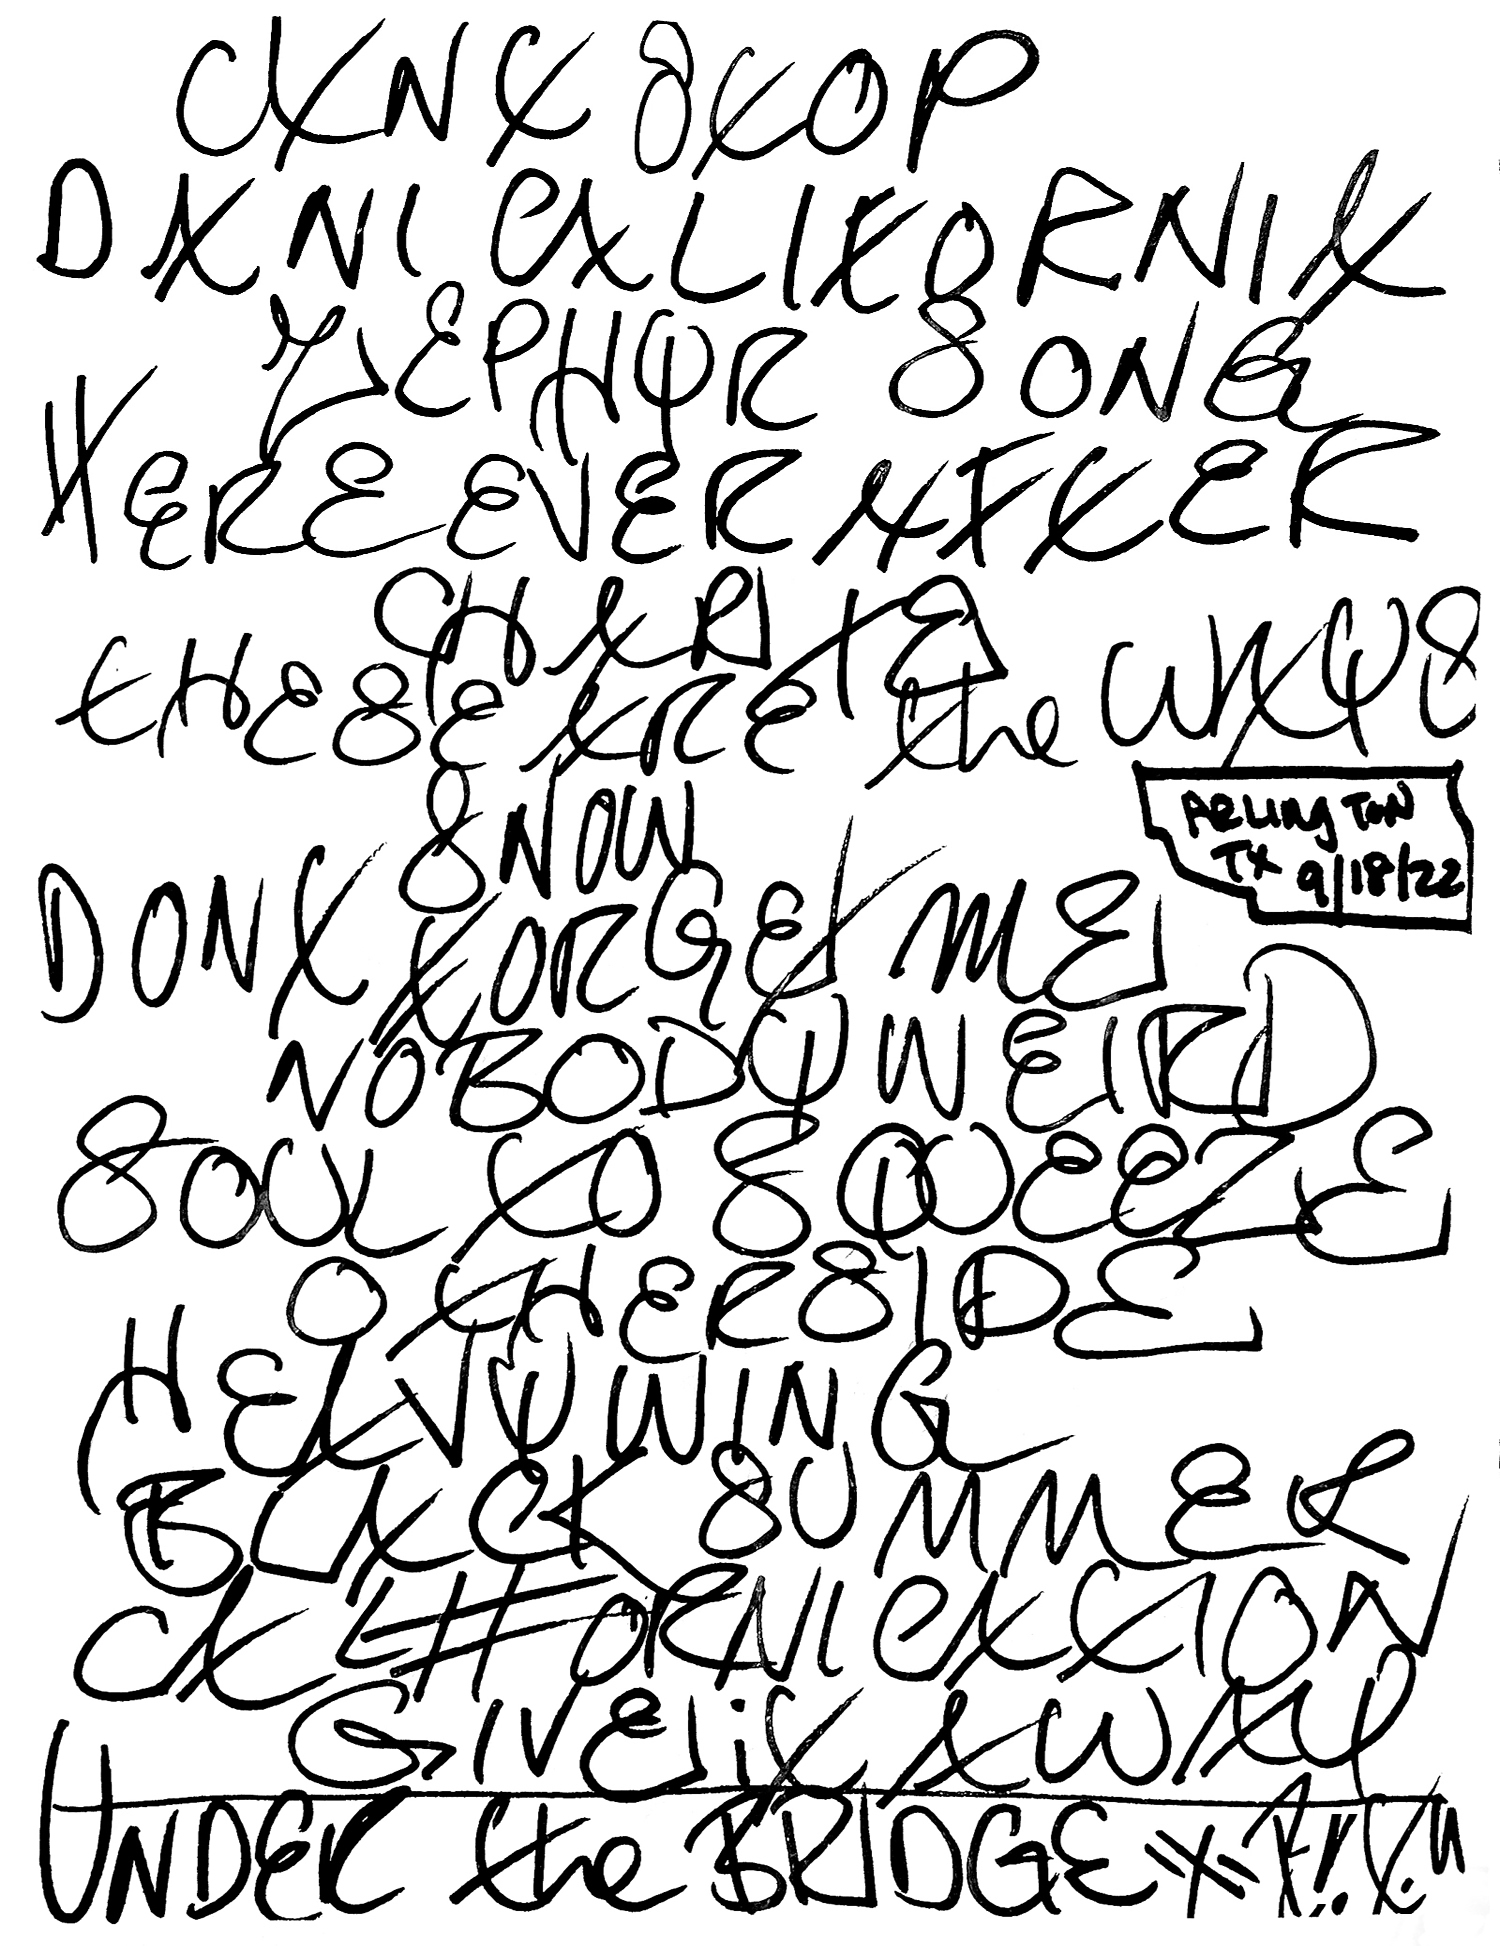 CANT STOP
DANI CALIFORNIA
ZEPHYR SONG
HERE EVER AFTER
CHARITE
THESE ARE the WAYS
SNOW
ARLINGTON
TX 9/18/22
DONT FORGET ME
NOBODY WEIRD
SOUL TO SQUEEZE
OTHERSIDE
HEAVY WING
BLACK SUMMER
CALIFORNICATION
GIVE iT AWAY
UNDER the BRIDGE